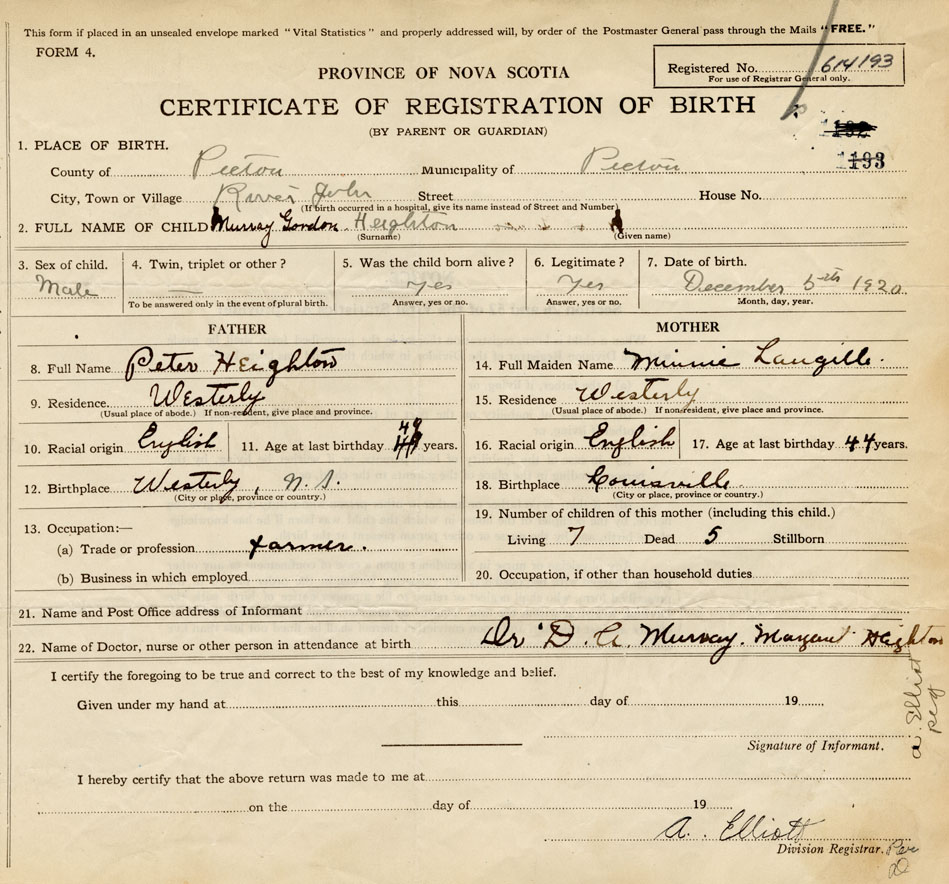 This form if placed in an unsealed envelope marked "Vital Statistics" and properly addressed will, by order of the Postmaster General pass through the Mails "FREE."
FORM 4.
Registered No. 614193
For use of Registrar General only.
PROVINCE OF NOVA SCOTIA
CERTIFICATE OF REGISTRATION OF BIRTH
(BY PARENT OR GUARDIAN)
1193
1. PLACE OF BIRTH.
County of Pictou Municipality of Pictou
City, Town or Village River John Street House No.
(If birth occurred in a hospital, give its name instead of Street and Number)
2. FULL NAME OF CHILD Murray Gordon Heighton
(Surname) (Given name)
3. Sex of child. 4. Twin, triplet or other? 5. Was the child born alive? 6. Legitimate? 7. Date of birth.
Male — yes yes December 5th 1920
To be answered only in the event of plural birth. Answer, yes or no. Answer, yes or no. Month, day, year.
FATHER MOTHER
8. Full Name Peter Heighton 14. Full Maiden Name Minnie Langille.
9. Residence. Westerly 15. Residence Westerly
(Usual place of abode.) If non-resident, give place and province. (Usual place of abode.) If non-resident, give place and province.
10. Racial origin English 11. Age at last birthday 49 years. 16. Racial origin English 17. Age at last birthday 44 years.
12. Birthplace Westerly, N.S. 18. Birthplace Louisville
(City or place, province or country.) (City or place, province or country.)
13. Occupation:— 19. Number of children of this mother (including this child.)
(a) Trade or profession farmer. Living 7 Dead 5 Stillborn
(b) Business in which employed 20. Occupation, if other than household duties
21. Name and Post Office address of Informant
22. Name of Doctor, nurse or other person in attendance at birth Dr D. A. Murray. Margaret Heighton
I certify the foregoing to be true and correct to the best of my knowledge and belief.
Given under my hand at this day of 19
Signature of Informant.
a. Elliott
reg
I hereby certify that the above return was made to me at
on the day of 19
A. Elliott
Division Registrar. Per